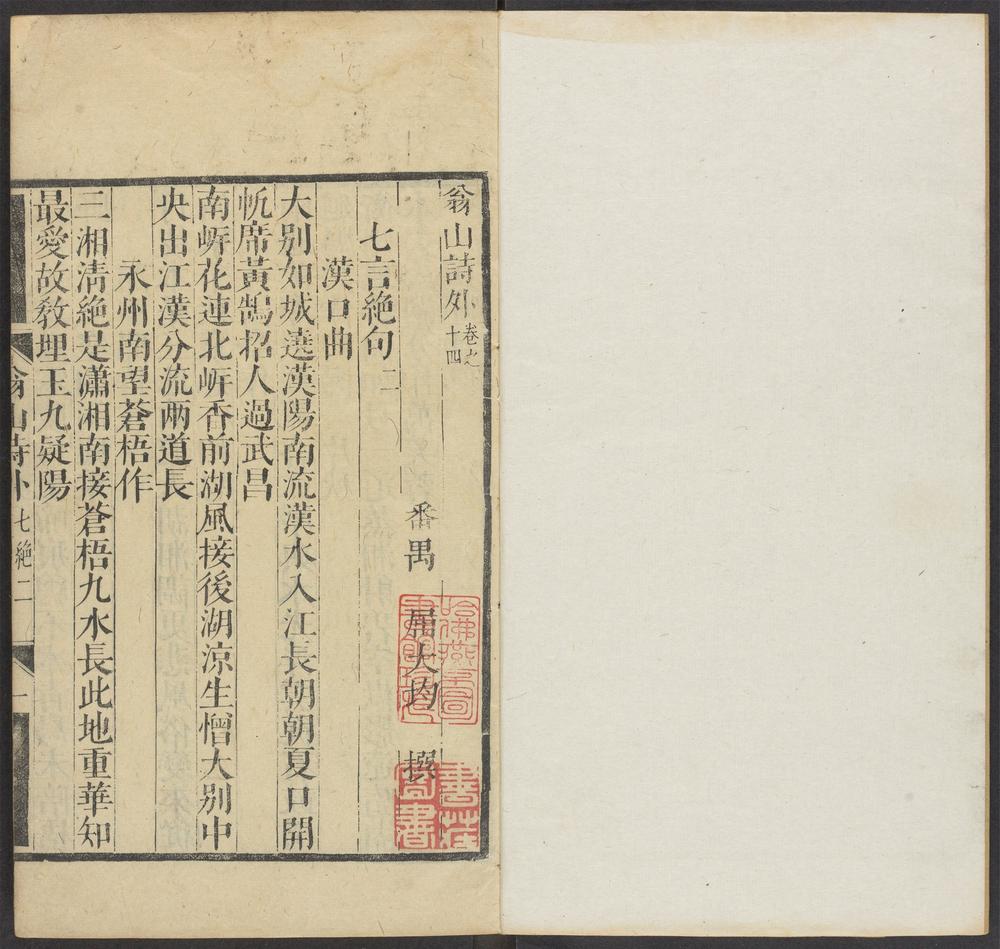 翁山詩外卷之十四
番禺 屈大均 撰
七言絶句二
漢口曲
大別如城遶漢陽南流漢水入江長朝朝夏口開
帆席黃鵠招人過武昌
南㟁花連北㟁香前湖風接後湖涼生憎大别中
央出江漢分流兩道長
永州南望蒼梧作
三湘清絶是瀟湘南接蒼梧九水長此地重華知
最愛故敎埋玉九疑陽
翁山詩外 七絶二 一
哈佛燕京圖書館珍藏